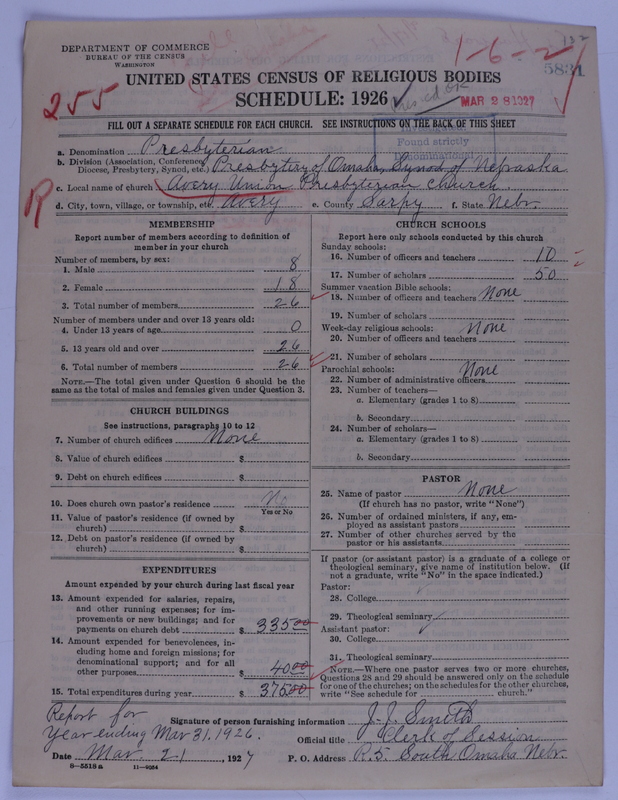 132
DEPARTMENT OF COMMERCE
BUREAU OF THE CENSUS
WASHINGTON
1-6-2
5831
UNITED STATES CENSUS OF RELIGIOUS BODIES
255
SCHEDULE: 1926
MAR 28 1927
FILL OUT A SEPARATE SCHEDULE FOR EACH CHURCH. SEE INSTRUCTIONS ON THE BACK OF THIS SHEET
Found strictly
Denominational
a. Denomination Presbyterian
b. Division (Association, Conference, Diocese, Presbytery, Synod, etc.) Presbytery of Omaha, Synod of Nebraska
R
c. Local name of church Avery Union Presbyterian church
d. City, town, village, or township, etc. Avery e. County Sarpy f. State Nebr.
MEMBERSHIP
Report number of members according to definition of member in your church
Number of members, by sex:
1. Male 8
2. Female 18
3. Total number of members 26
Number of members under and over 13 years old:
4. Under 13 years of age 0
5. 13 years old and over 26
6. Total number of members 26
NOTE.—The total given under Question 6 should be the same as the total of males and females given under Question 3.
CHURCH BUILDINGS
See instructions, paragraphs 10 to 12
7. Number of church edifices None
8. Value of church edifices $
9. Debt on church edifices $
10. Does church own pastor's residence No
Yes or No
11. Value of pastor's residence (if owned by church) $
12. Debt on pastor's residence (if owned by church) $
EXPENDITURES
Amount expended by your church during last fiscal year
13. Amount expended for salaries, repairs, and other running expenses; for improvements or new buildings; and for payments on church debt $ 335 00
14. Amount expended for benevolences, including home and foreign missions; for denominational support; and for all other purposes $ 40 00
15. Total expenditures during year $ 375 00
CHURCH SCHOOLS
Report here only schools conducted by this church
Sunday schools:
16. Number of officers and teachers 10
17. Number of scholars 50
Summer vacation Bible schools:
18. Number of officers and teachers None
19. Number of scholars
Week-day religious schools: None
20. Number of officers and teachers
21. Number of scholars
Parochial schools: None
22. Number of administrative officers
23. Number of teachers—
a. Elementary (grades 1 to 8)
b. Secondary
24. Number of scholars—
a. Elementary (grades 1 to 8)
b. Secondary
PASTOR
25. Name of pastor None
(If church has no pastor, write "None")
26. Number of ordained ministers, if any, employed as assistant pastors
27. Number of other churches served by the pastor or his assistants
If pastor (or assistant pastor) is a graduate of a college or theological seminary, give name of institution below. (If not a graduate, write "No" in the space indicated.)
Pastor:
28. College
29. Theological seminary
Assistant pastor:
30. College
31. Theological seminary
NOTE.—Where one pastor serves two or more churches, Questions 28 and 29 should be answered only on the schedule for one of the churches; on the schedules for the other churches, write "See schedule for church."
Report for
Year ending Mar 31, 1926.
Signature of person furnishing information J. J. Smith
Official title Clerk of Session
Date Mar. 21, 1927
P. O. Address R. 5. South Omaha Nebr.
8—5518 a 11—9054